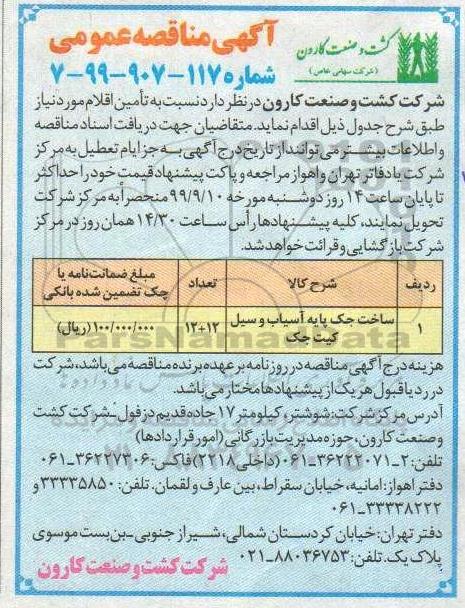 آگهی مناقصه عمومی
شماره ۱۱۷-۹۰۷-۹۹-۷
کشت و صنعت کارون
(شرکت سهامی خاص)
شرکت کشت و صنعت کارون در نظر دارد نسبت به تأمین اقلام مورد نیاز
طبق شرح جدول ذیل اقدام نماید. متقاضیان جهت دریافت اسناد مناقصه
و اطلاعات بیشتر می توانند از تاریخ درج آگهی به جز ایام تعطیل به مرکز
شرکت یا دفاتر تهران و اهواز مراجعه و پاکت پیشنهاد قیمت خود را حداکثر
تا پایان ساعت ۱۴ روز دوشنبه مورخه ۹۹/۹/۱۰ منحصراً به مرکز شرکت
تحویل نمایند، کلیه پیشنهادها رأس ساعت ۱۴/۳۰ همان روز در مرکز
شرکت بازگشایی و قرائت خواهد شد.
ردیف شرح کالا تعداد مبلغ ضمانت‌نامه یا
چک تضمین شده بانکی
۱ ساخت جک پایه آسیاب و سیل
کیت جک ۱۲+۱۳ ۱۰۰/۰۰۰/۰۰۰ (ریال)
هزینه درج آگهی مناقصه در روزنامه بر عهده برنده مناقصه می باشد، شرکت
در رد یا قبول هر یک از پیشنهادها مختار می باشد.
آدرس مرکز شرکت: شوشتر، کیلومتر ۱۷ جاده قدیم دزفول-شرکت کشت
و صنعت کارون، حوزه مدیریت بازرگانی (امور قراردادها)
تلفن: ۲-۳۶۲۲۲۰۷۱-۰۶۱ (داخلی ۲۲۱۸) فاکس: ۳۶۲۲۷۳۰۶-۰۶۱
دفتر اهواز: امانیه، خیابان سقراط، بین عارف و لقمان. تلفن: ۳۳۳۳۵۸۵۰ و
۳۳۳۳۸۲۲۲-۰۶۱
دفتر تهران: خیابان کردستان شمالی، شیراز جنوبی-بن بست موسوی
پلاک یک. تلفن: ۸۸۰۳۶۷۵۳-۰۲۱
شرکت کشت و صنعت کارون
ParsNamadData